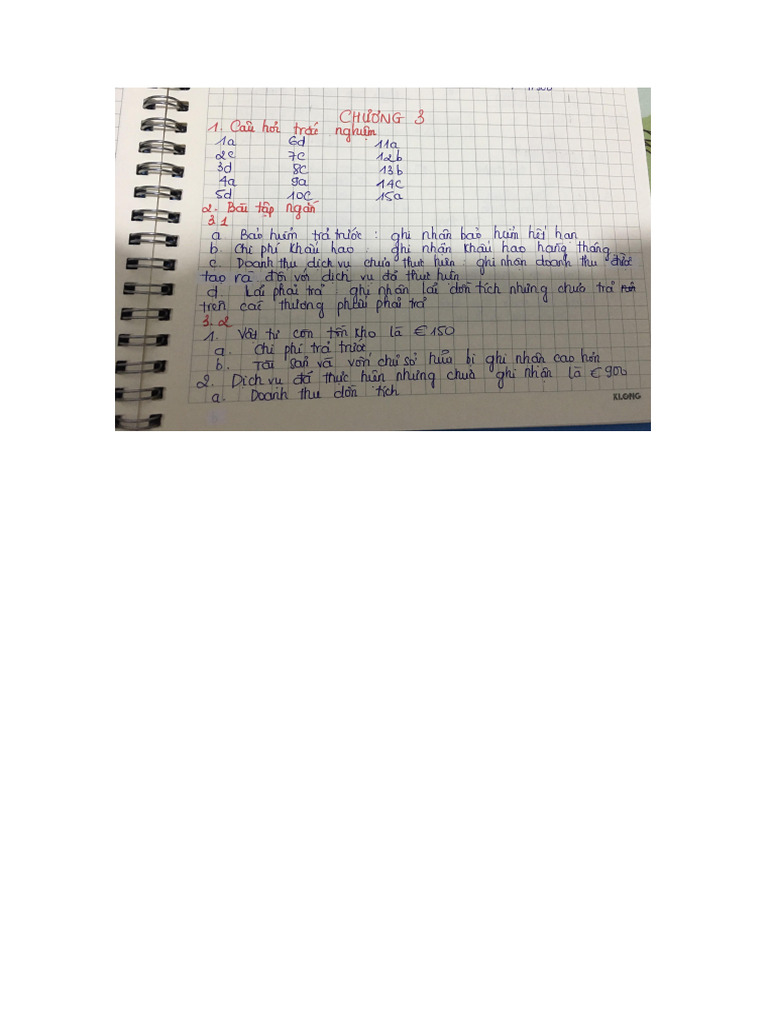 CHƯƠNG 3
1. Câu hỏi trắc nghiệm
1a 6d 11a
2c 7c 12b
3d 8c 13b
4a 9a 14c
5d 10c 15a
2. Bài tập ngắn
3.1
a. Bảo hiểm trả trước : ghi nhận bảo hiểm hết hạn
b. Chi phí khấu hao : ghi nhận khấu hao hàng tháng
c. Doanh thu dịch vụ chưa thực hiện : ghi nhận doanh thu được
tạo ra đối với dịch vụ đã thực hiện
d. Lãi phải trả : ghi nhận lãi dồn tích nhưng chưa trả
trên các thương phiếu phải trả
3.2
1. Vật tư còn tồn kho là €150
a. Chi phí trả trước
b. Tài sản và vốn chủ sở hữu bị ghi nhận cao hơn
2. Dịch vụ đã thực hiện nhưng chưa ghi nhận là €900
a. Doanh thu dồn tích
KLONG